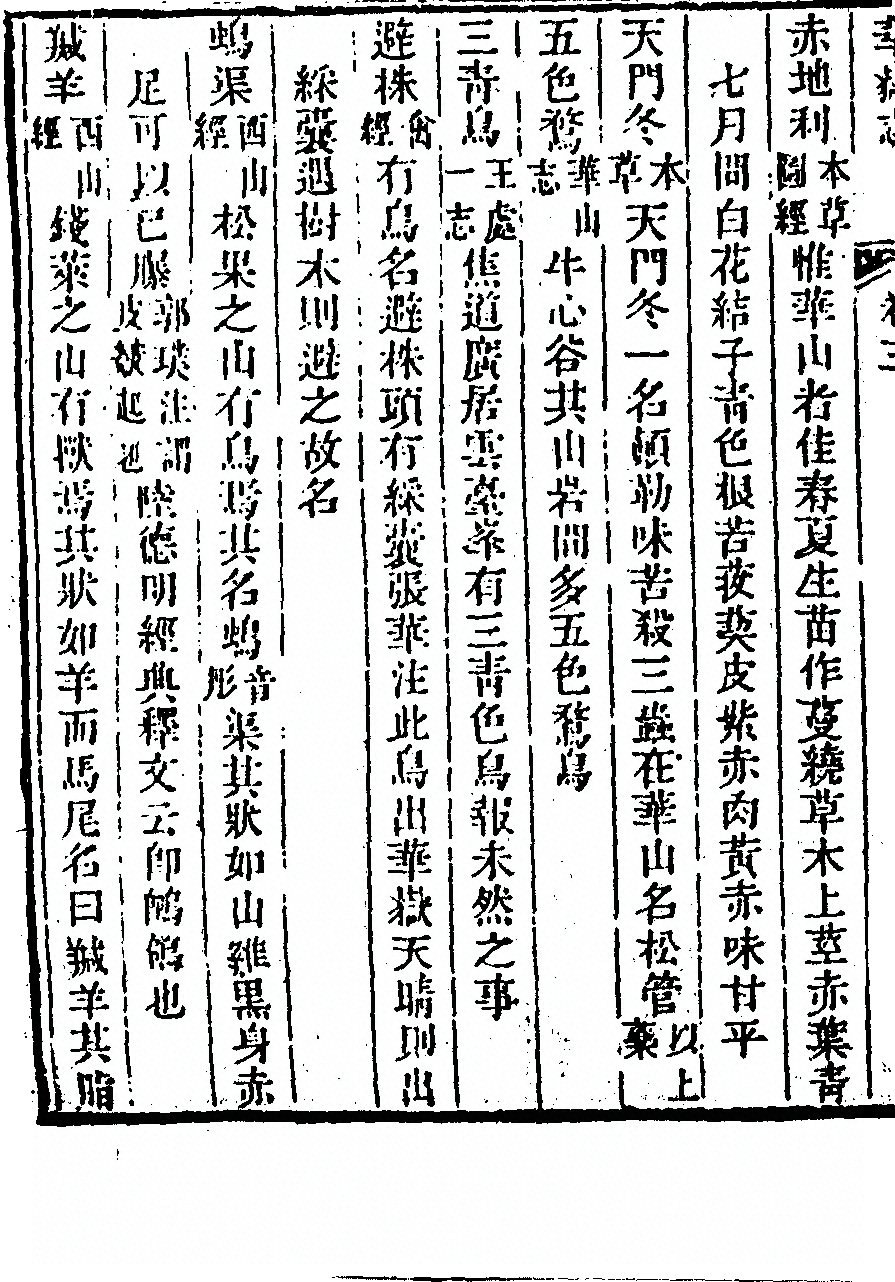 赤地利本草圖經惟華山者佳春夏生苗作蔓繞草木上莖赤葉青
七月開白花結子青色根若菝葜皮紫赤肉黃赤味甘平
天門冬本草天門冬一名顛勒味苦殺三蟲在華山名松管以上藥
五色鶩華山志牛心谷其山岩間多五色鶩鳥
三青鳥王處一志焦道廣居雲臺峯有三青色鳥報未然之事
避株禽經有鳥名避株頭有綵囊張華注此鳥出華嶽天晴則出
綵囊遇樹木則避之故名
䳋渠西山經松果之山有鳥焉其名䳋音彤渠其狀如山雞黑身赤
足可以已㿺郭璞注謂皮皴起也陸德明經典釋文云卽鸓鴿也
羬羊西山經錢萊之山有獸焉其狀如羊而馬尾名曰羬羊其脂